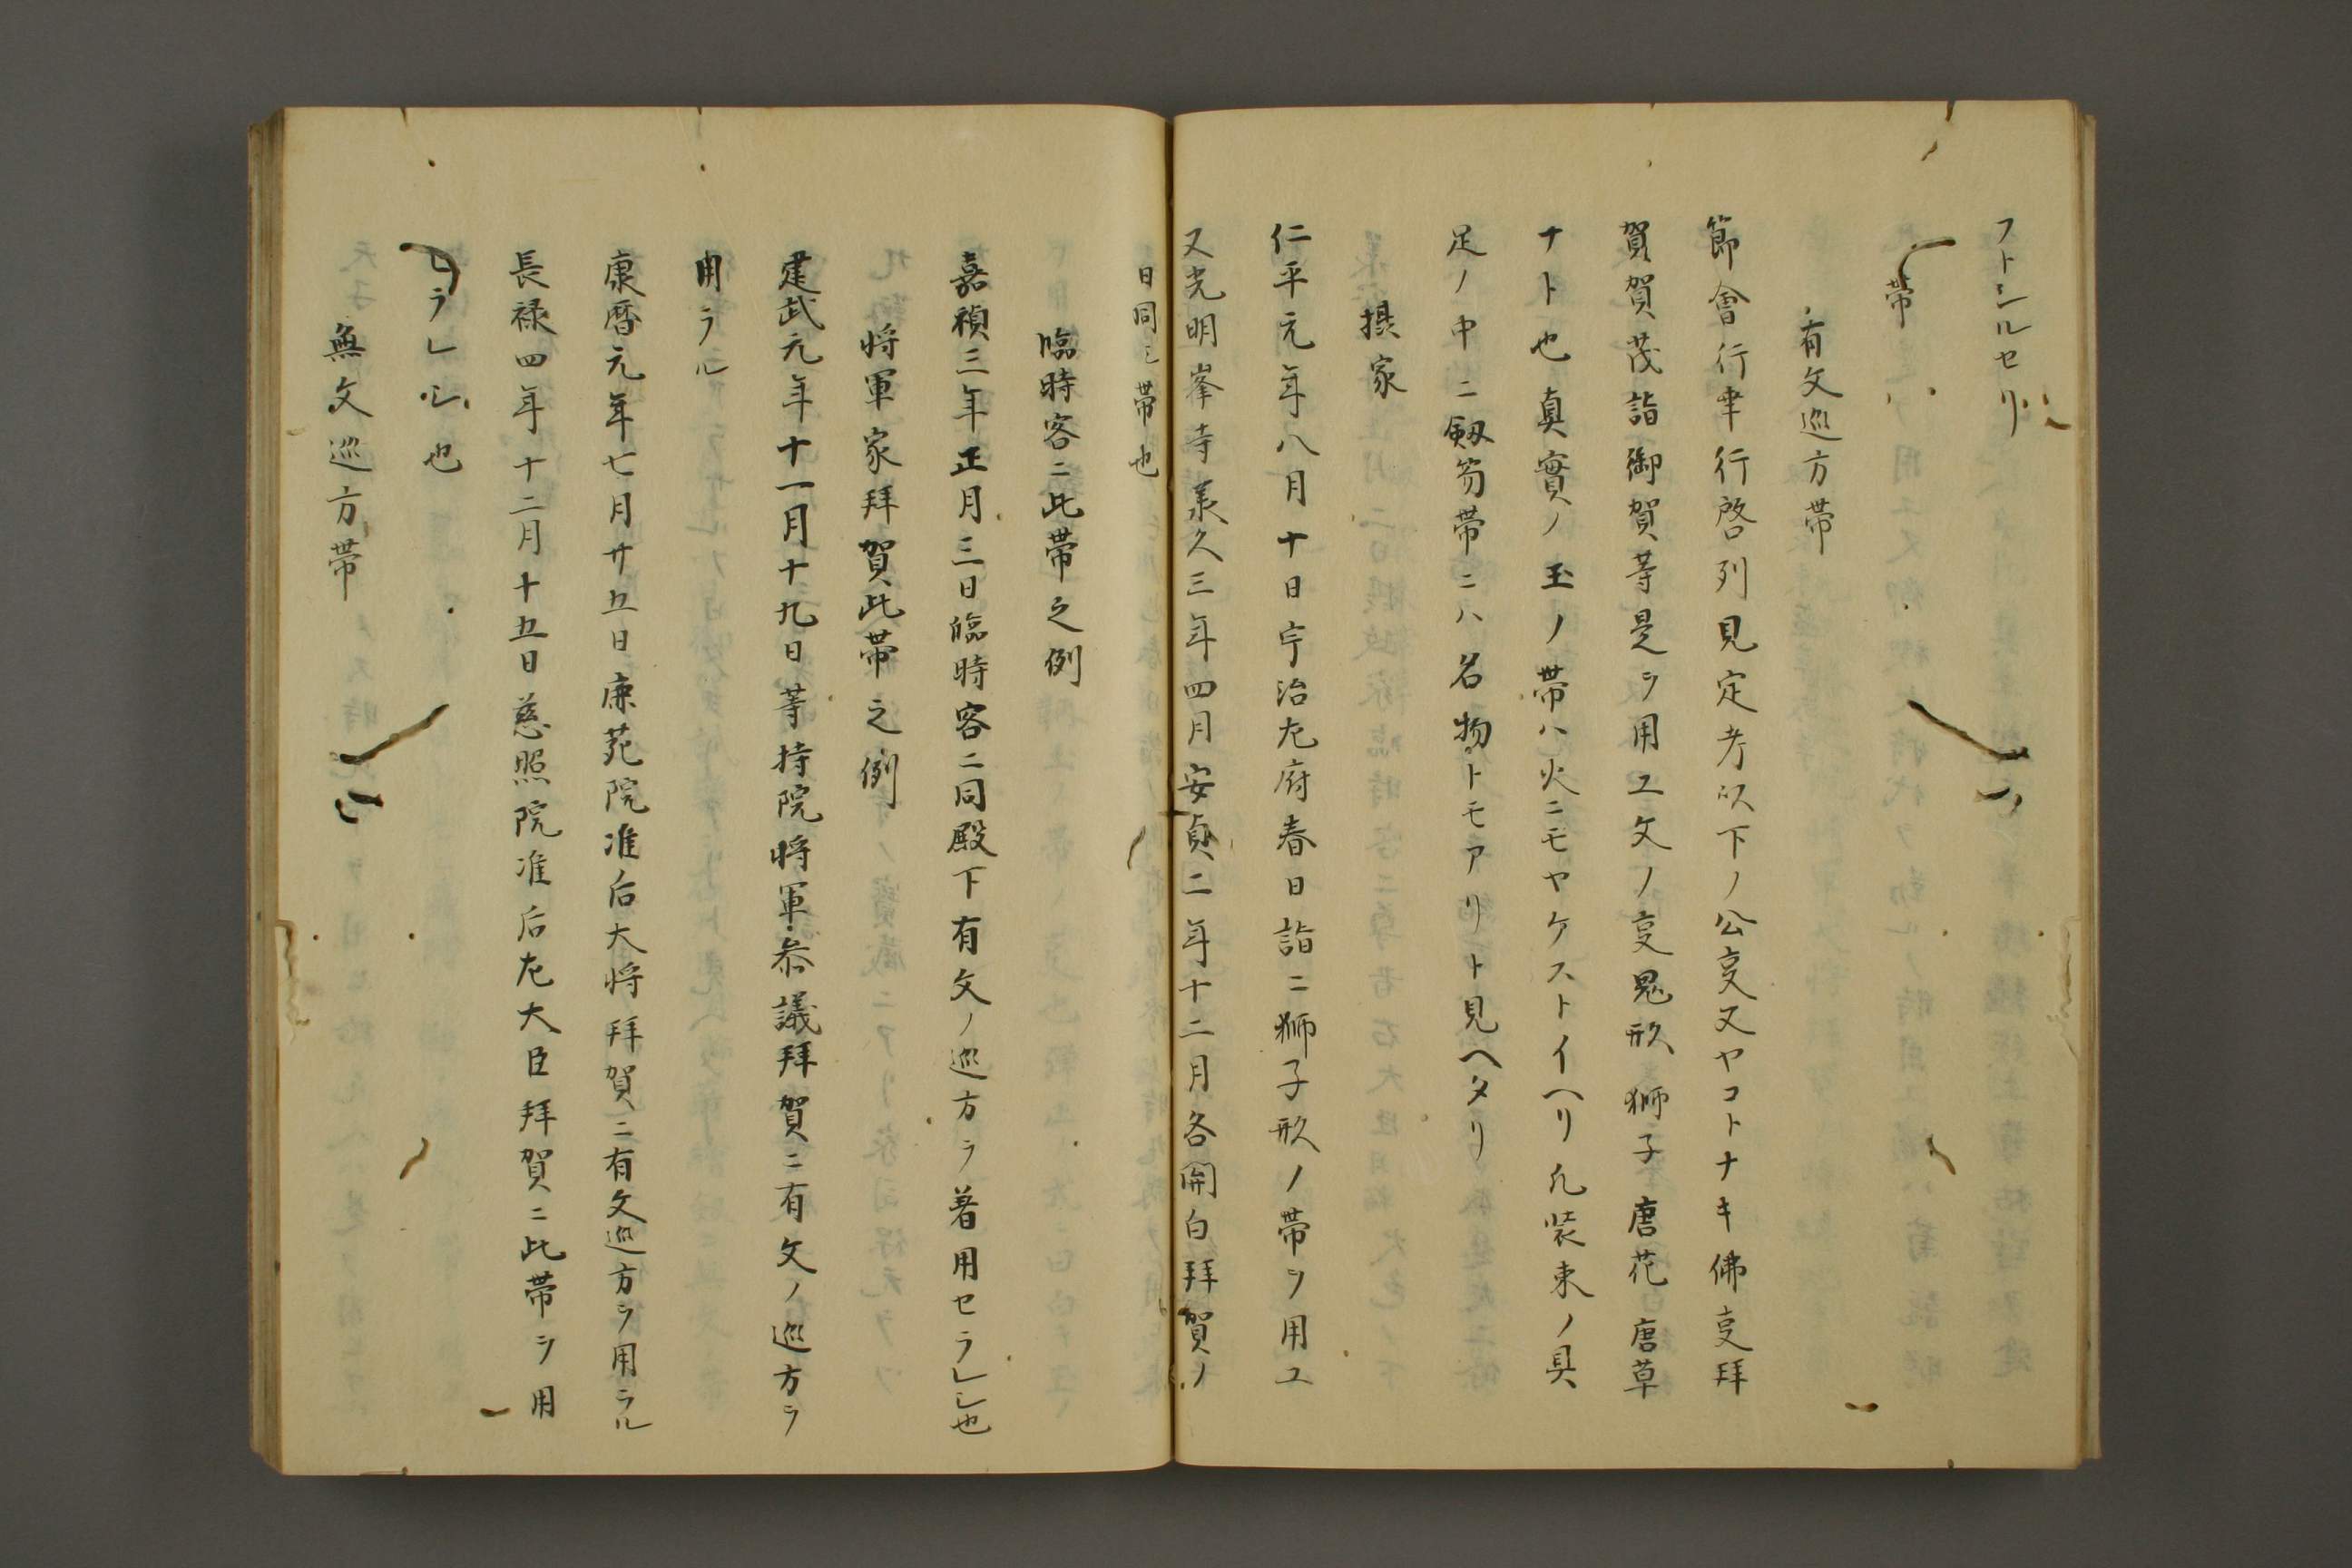 フトシルセリ
帯
有文巡方帯
節會行幸行啓列見定考以下ノ公事又ヤコトナキ佛事拜
賀賀茂詣御賀等是ヲ用ユ文ノ事鬼形獅子唐花唐草
ナト也真實ノ玉ノ帯ハ火ニモヤケストイヘリ凡装束ノ具
足ノ中ニ剱笏帯ニハ名物トモアリト見ヘタリ
摂家
仁平元年八月十日宇治左府春日詣ニ獅子形ノ帯ヲ用ユ
又光明峯寺承久三年四月安貞二年十二月各関白拜賀ノ
日同シ帯也
臨時客ニ此帯之例
嘉禎三年正月三日臨時客ニ同殿下有文ノ巡方ヲ着用セラレシ也
将軍家拜賀此帯之例
建武元年十一月十九日等持院将軍参議拜賀ニ有文ノ巡方ヲ
用ラル
康暦元年七月廿五日鹿苑院准后大将拜賀ニ有文巡方ヲ用ラル
長禄四年十二月十五日慈照院准后左大臣拜賀ニ此帯ヲ用
ヒラレシ也
無文巡方帯